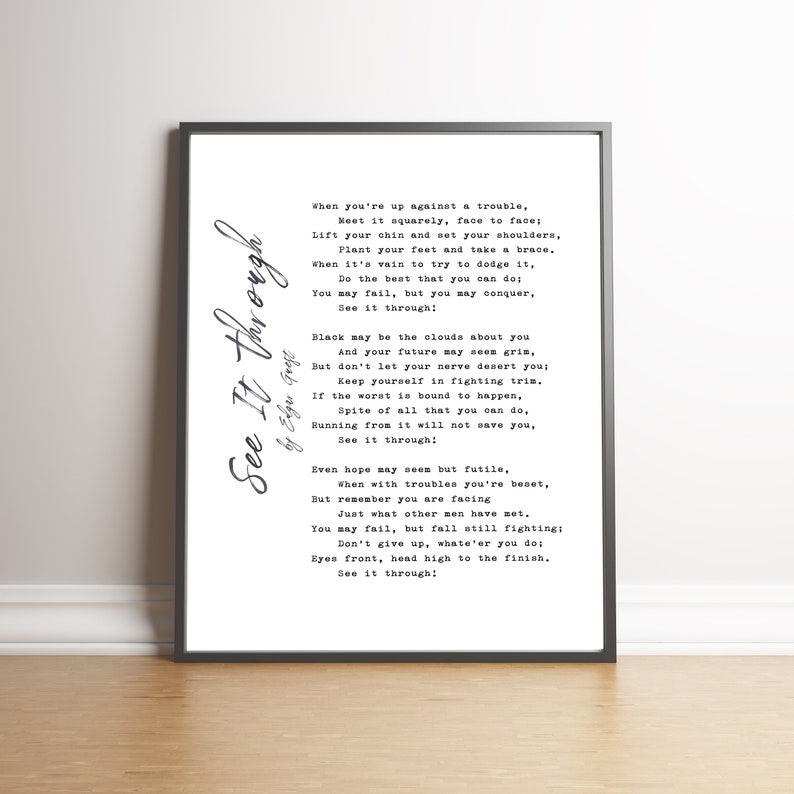 See It Through
by Edgar Guest
When you're up against a trouble,
Meet it squarely, face to face;
Lift your chin and set your shoulders,
Plant your feet and take a brace.
When it's vain to try to dodge it,
Do the best that you can do;
You may fail, but you may conquer,
See it through!
Black may be the clouds about you
And your future may seem grim,
But don't let your nerve desert you;
Keep yourself in fighting trim.
If the worst is bound to happen,
Spite of all that you can do,
Running from it will not save you,
See it through!
Even hope may seem but futile,
When with troubles you're beset,
But remember you are facing
Just what other men have met.
You may fail, but fall still fighting;
Don't give up, whate'er you do;
Eyes front, head high to the finish.
See it through!